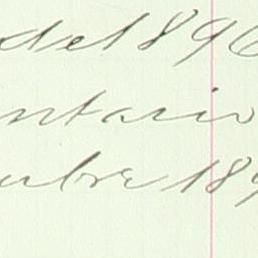 del 1896
ntario
ubre 189